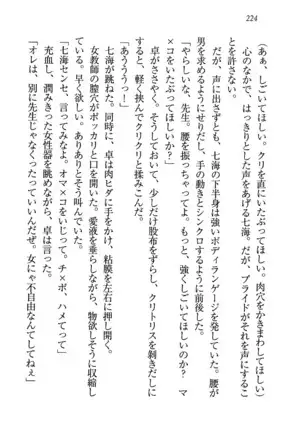 224
(ああ、して、してほしい。クリを直にいたぶってほしい。肉穴をかきまわしてほしい)
心のなかで、はっきりとした声をあげる七海。だが、プライドがそれを声にするこ
とを許さない。
だが、声に出さずとも、七海の下半身は強いボディランゲージを発していた。腰が
男を求めるようにせりだし、手の動きとシンクロするように前後した。
「やらしいな、先生。腰が振っちゃってよ。もっと、強くしごいてほしいか? マ
×コをいたぶってほしいか?」
卓がささやく。そうしておいて、少しだけ股布をずらし、クリトリスを剥きだしに
すると、軽く挟んでクリクリと揉みこんだ。
「あううううっ!」
七海が跳ねた。同時に、卓は肉ヒダに手をかけ、粘膜を左右に押し開く。
女教師の膣穴がポッカリと口を開いた。愛液を垂らしながら、物欲しそうに収縮し
ている。ありありとそう叫んでいた。
「七海センセ、言ってみなよ。オマ×コをいじって。チ×ポ、ハメてって」
充血し、潤みきった女性器を眺めながら、卓は言った。
「オレは、別に先生じゃなくってもいいんだぜ。女にゃ不自由なんてしてねぇ」